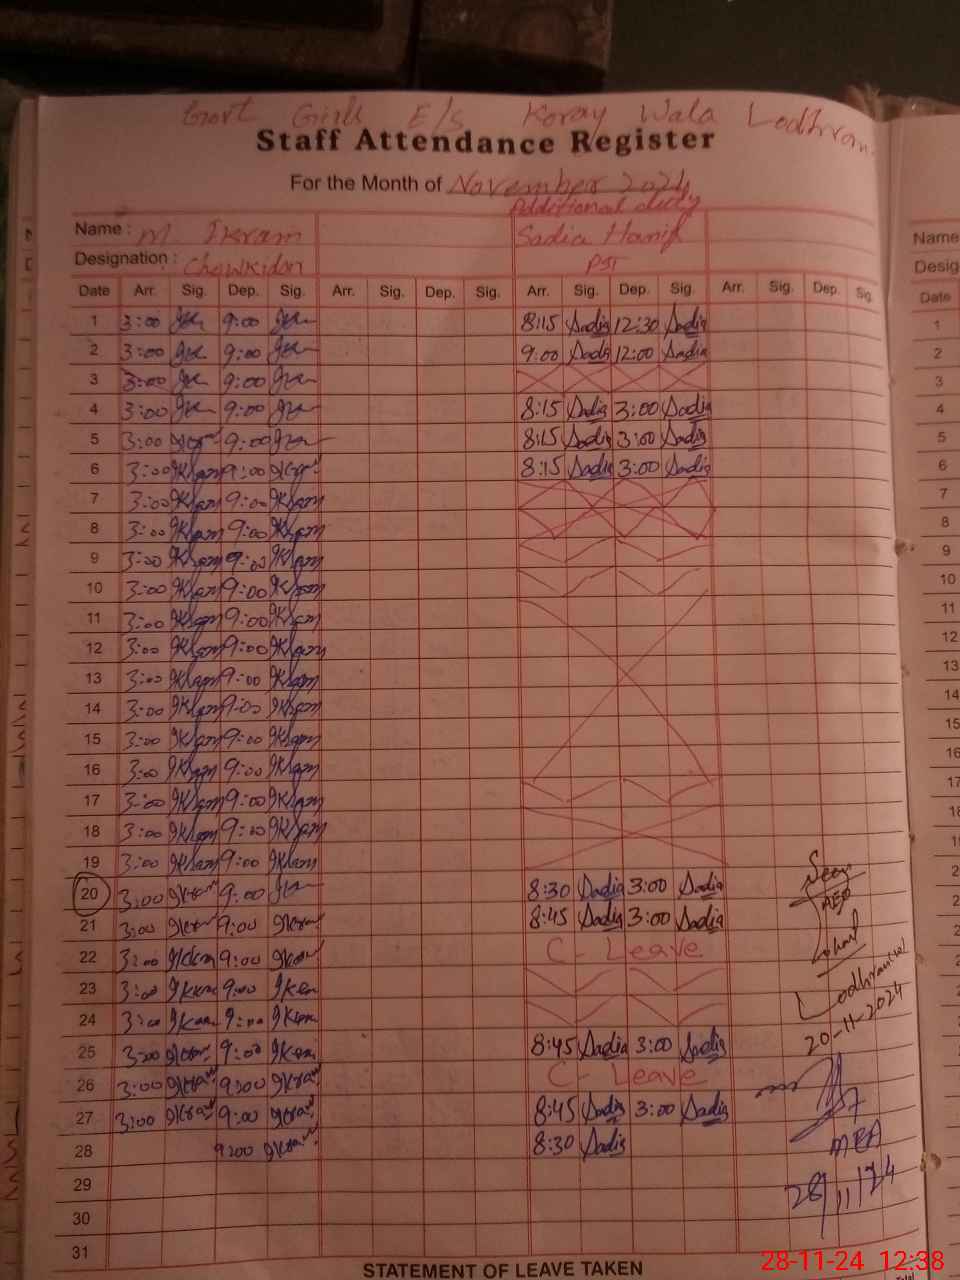 Govt Girls E/S Koray Wala Lodhran
Staff Attendance Register
For the Month of November 2024
Additional duty
Name : M. Ikram Sadia Hanif
Designation : Chowkidar PST
Date Arr. Sig. Dep. Sig. Arr. Sig. Dep. Sig. Arr. Sig. Dep. Sig. Arr. Sig. Dep. Sig.
1 3:00 9:00 8:15 Sadia 12:30 Sadia
2 3:00 9:00 9:00 Sadia 12:00 Sadia
3 3:00 9:00
4 3:00 9:00 8:15 Sadia 3:00 Sadia
5 3:00 9:00 8:15 Sadia 3:00 Sadia
6 3:00 Ikram 9:00 Ikram 8:15 Sadia 3:00 Sadia
7 3:00 Ikram 9:00 Ikram
8 3:00 Ikram 9:00 Ikram
9 3:00 Ikram 9:00 Ikram
10 3:00 Ikram 9:00 Ikram
11 3:00 Ikram 9:00 Ikram
12 3:00 Ikram 9:00 Ikram
13 3:00 Ikram 9:00 Ikram
14 3:00 Ikram 9:00 Ikram
15 3:00 Ikram 9:00 Ikram
16 3:00 Ikram 9:00 Ikram
17 3:00 Ikram 9:00 Ikram
18 3:00 Ikram 9:00 Ikram
19 3:00 Ikram 9:00 Ikram
20 3:00 Ikram 9:00 8:30 Sadia 3:00 Sadia
21 3:00 Ikram 9:00 Ikram 8:45 Sadia 3:00 Sadia
22 3:00 Ikram 9:00 Ikram C- Leave
23 3:00 Ikram 9:00 Ikram
24 3:00 Ikram 9:00 Ikram
25 3:00 Ikram 9:00 Ikram 8:45 Sadia 3:00 Sadia
26 3:00 Ikram 9:00 Ikram C- Leave
27 3:00 Ikram 9:00 Ikram 8:45 Sadia 3:00 Sadia
28 9:00 Ikram 8:30 Sadia
29
30
31
Seen
AEO
Lodhran
20-11-2024
MEA
28/11/24
STATEMENT OF LEAVE TAKEN
Name
Desig
Date
1
2
3
4
5
6
7
8
9
10
11
12
13
14
15
16
17
18
28-11-24 12:38